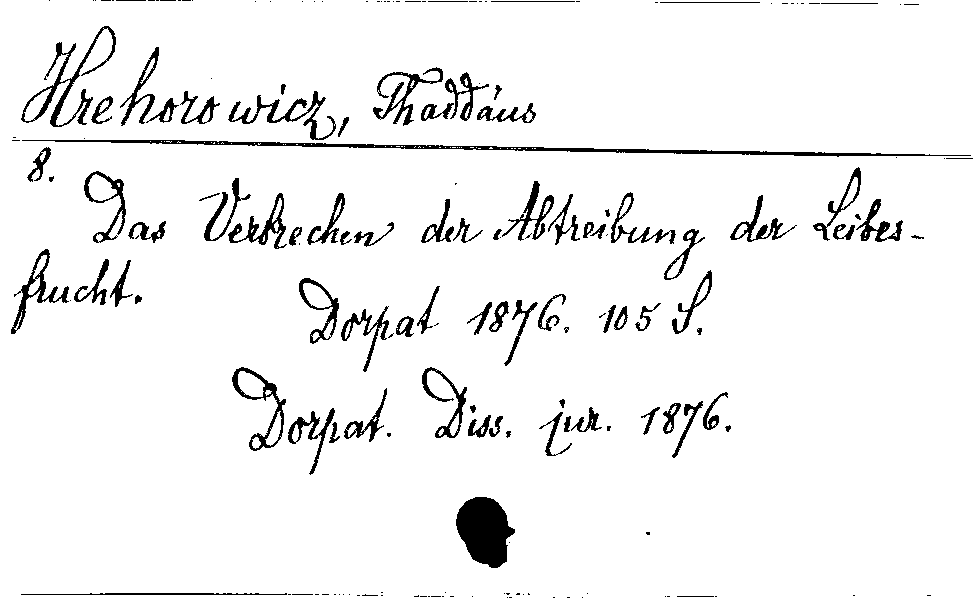 Hrehorowicz, Thaddäus
8.
Das Verbrechen der Abtreibung der Leibes-
frucht.
Dorpat 1876. 105 S.
Dorpat. Diss. jur. 1876.